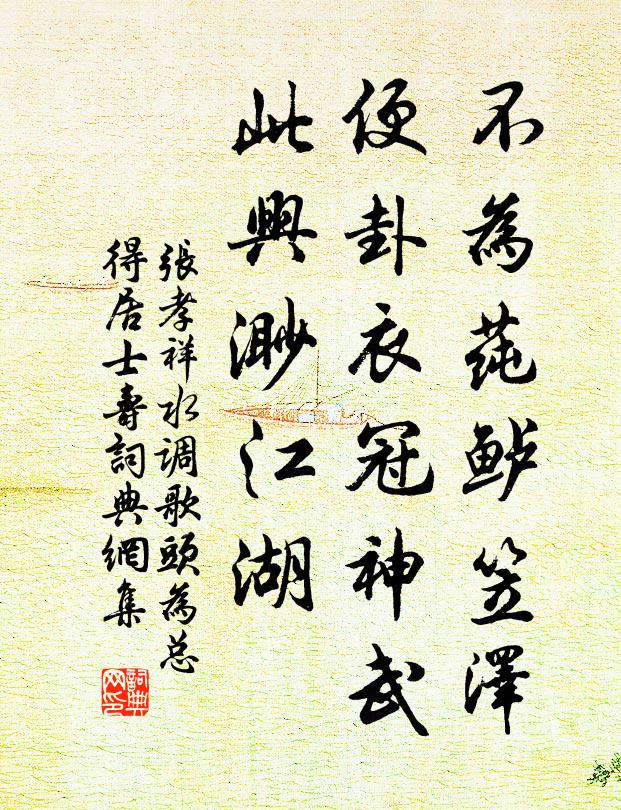 不為莼鲈笠澤
便卦衣冠神武
此興渺江湖
張孝祥水调歌頭為总
得居士壽詞典網集
詞典
网印